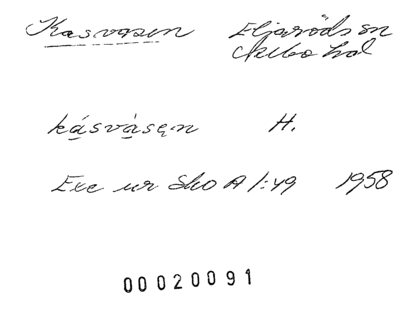 Kasvasen Eljaröds sn
Ask bo hd
kásvásęn H.
Exc ur Sko A 1:49 1958
00020091